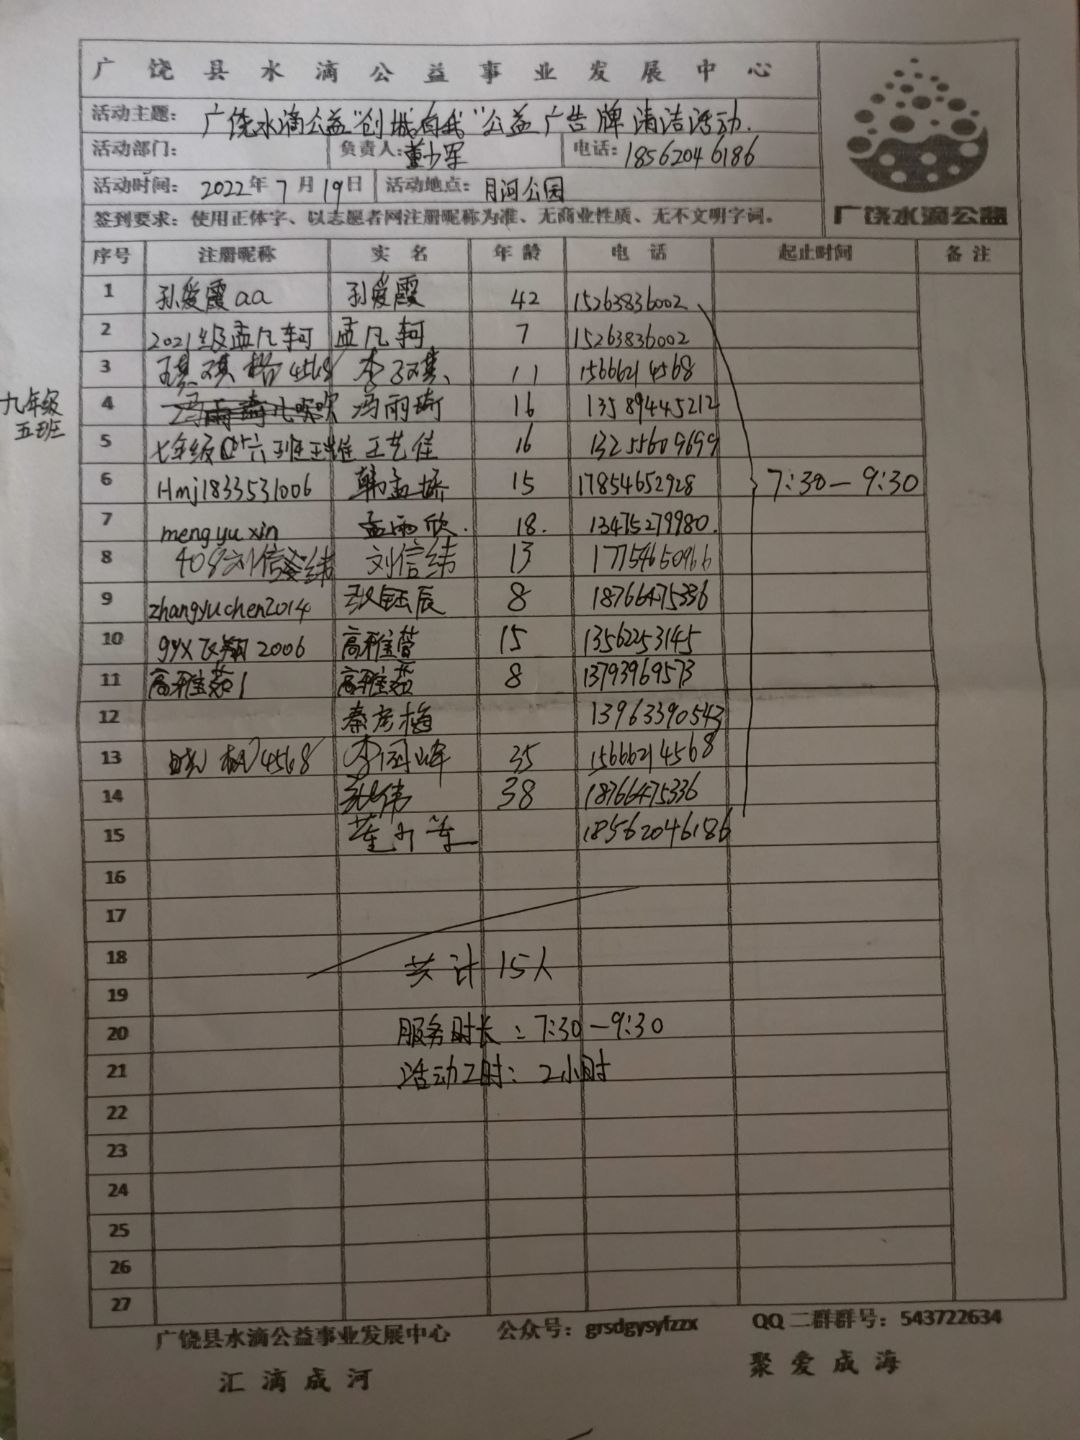 广饶县水滴公益事业发展中心
活动主题： 广饶水滴公益"创城有我"公益广告牌清洁活动.
活动部门： 负责人：董少军 电话：18562046186
活动时间： 2022年7月19日 活动地点： 月河公园
签到要求：使用正体字、以志愿者网注册昵称为准、无商业性质、无不文明字词。
广饶水滴公益
序号 注册昵称 实名 年龄 电话 起止时间 备注
1 孙爱霞aa 孙爱霞 42 15263836002
2 2021级孟凡轲 孟凡轲 7 15263836002
3 4568 李子琪 11 15666214568
九年级
五班
4 冯雨琦 16 13589445212
5 七年级 六班王艺佳 王艺佳 16 13255609699
6 Hmj1833531006 韩孟娇 15 17854652928 7:30—9:30
7 mengyuxin 孟雨欣. 18. 13475279980.
8 刘信纬 13 17754650966
9 zhangyuchen2014 张钰辰 8 18766475336
10 gyx飞翔2006 高雅萱 15 13562253145
11 高雅茹1 高雅茹 8 13793969573
12 秦彦梅 13963390543
13 4568 李国峰 35 15666214568
14 张伟 38 18766475336
15 董少军 18562046186
16
17
18 共计15人
19
20 服务时长：7:30—9:30
21 活动工时：2小时
22
23
24
25
26
27
广饶县水滴公益事业发展中心 公众号：grsdgysyfzzx QQ二群群号：543722634
汇滴成河 聚爱成海